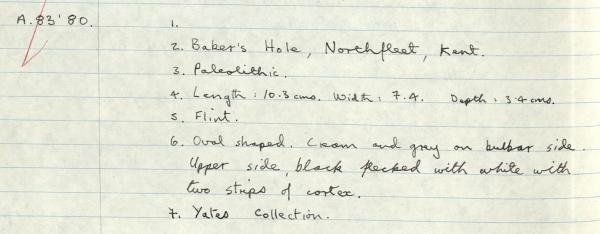 A.83'80. 1.
2. Baker's Hole, Northfleet, Kent.
3. Paleolithic.
4. Length: 10.3 cms. Width: 7.4. Depth: 3.4 cms.
5. Flint.
6. Oval shaped. Cream and grey on bulbar side.
Upper side, black flecked with white with
two strips of cortex.
7. Yates Collection.